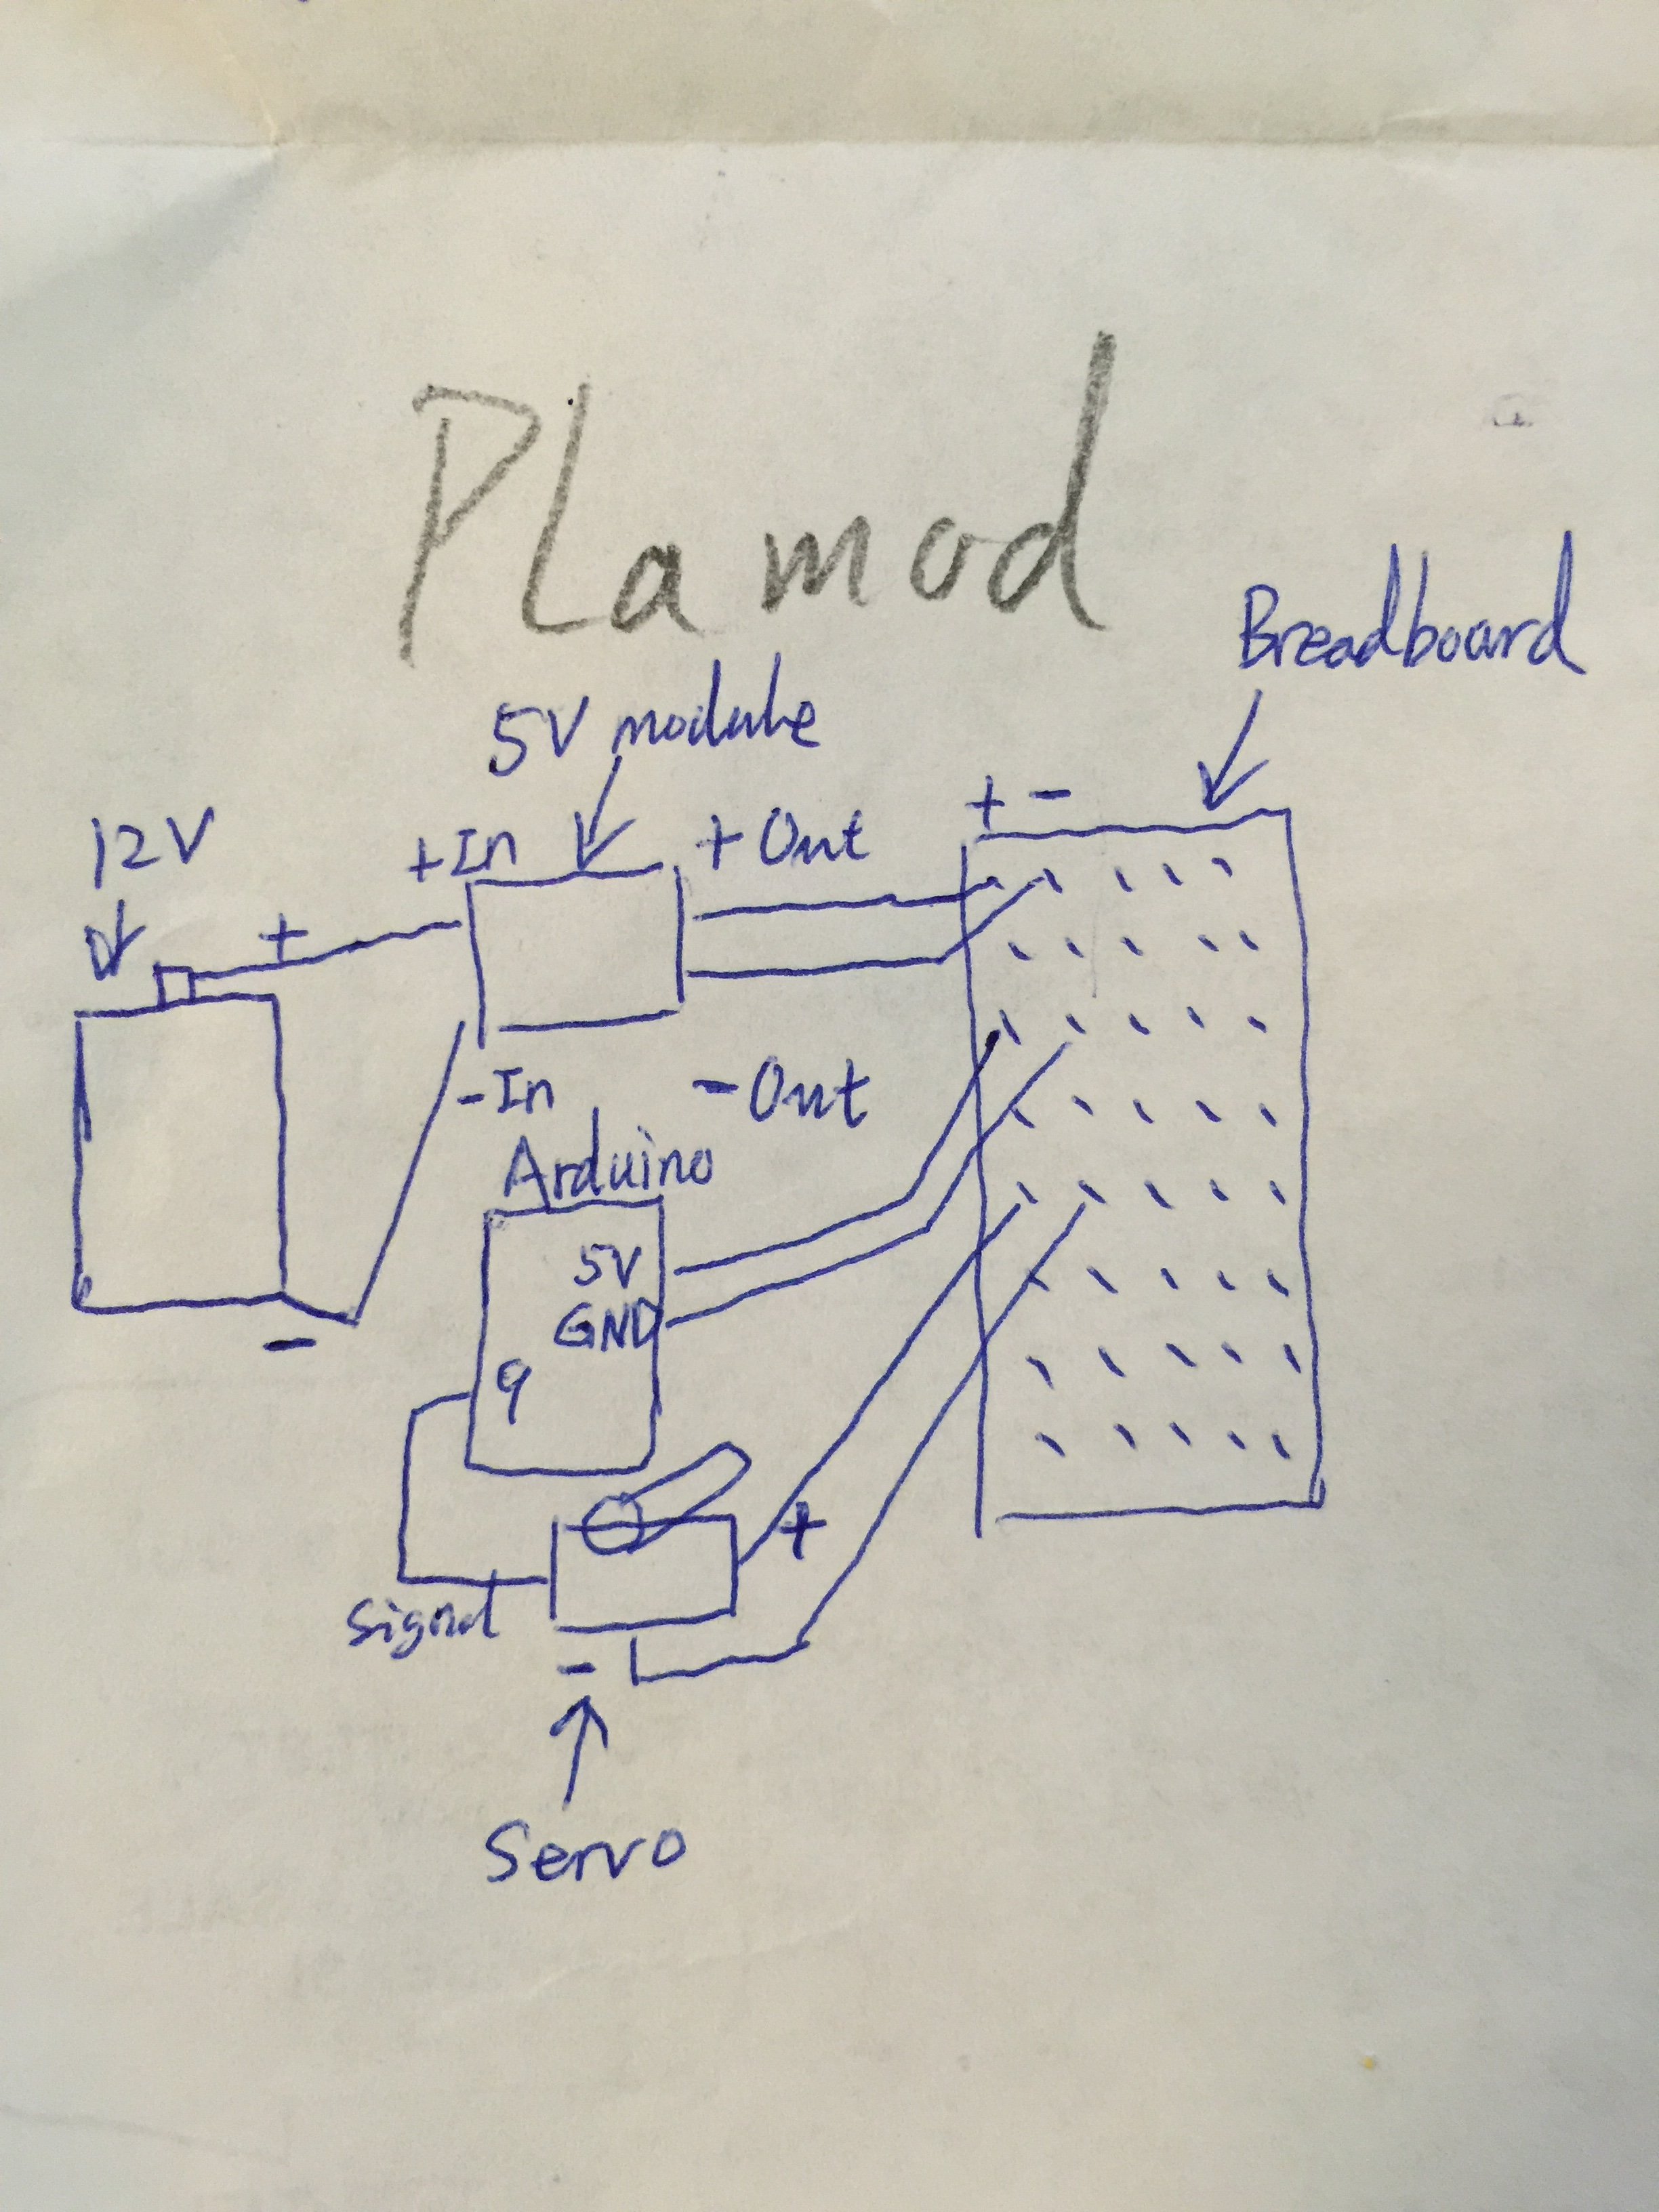 PLamod
Breadboard
5V module
+ -
12V
+In
+Out
+
-In
-Out
Arduino
5V
GND
-
9
+
Signal
-
Servo